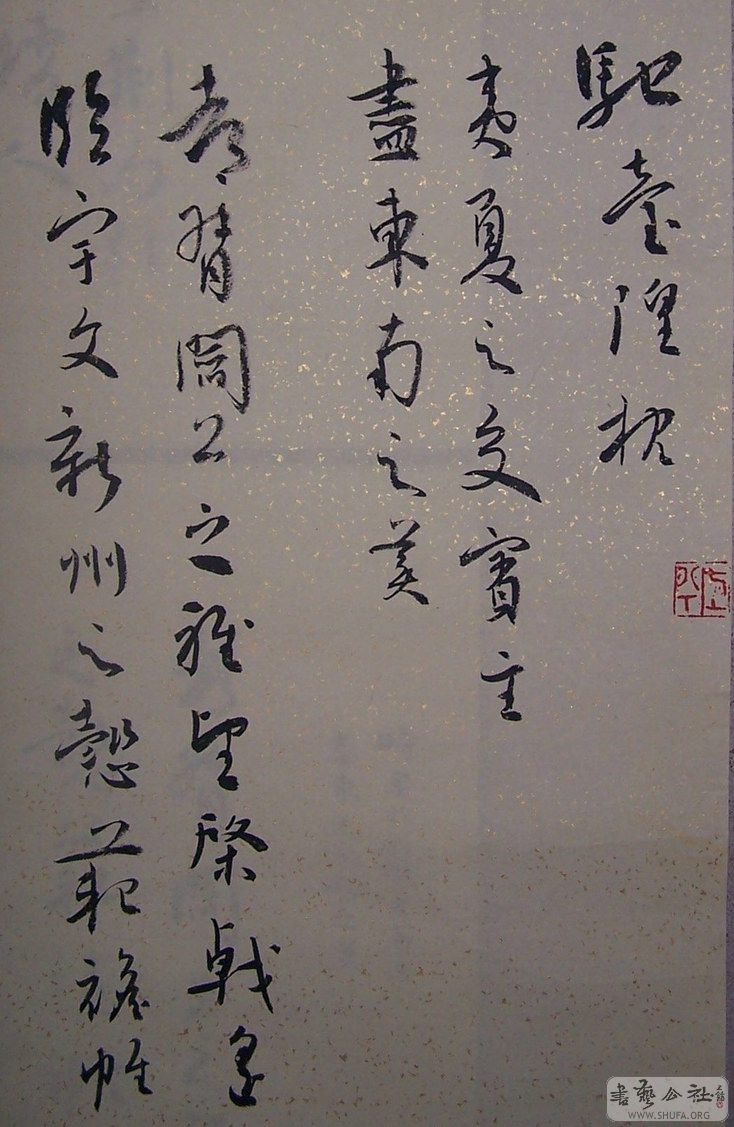 馳臺隍枕
夷夏之交賓主
盡東南之美
都督閻公之雅望棨戟遙
臨宇文新州之懿範襜帷
書藝公社
WWW.SHUFA.ORG